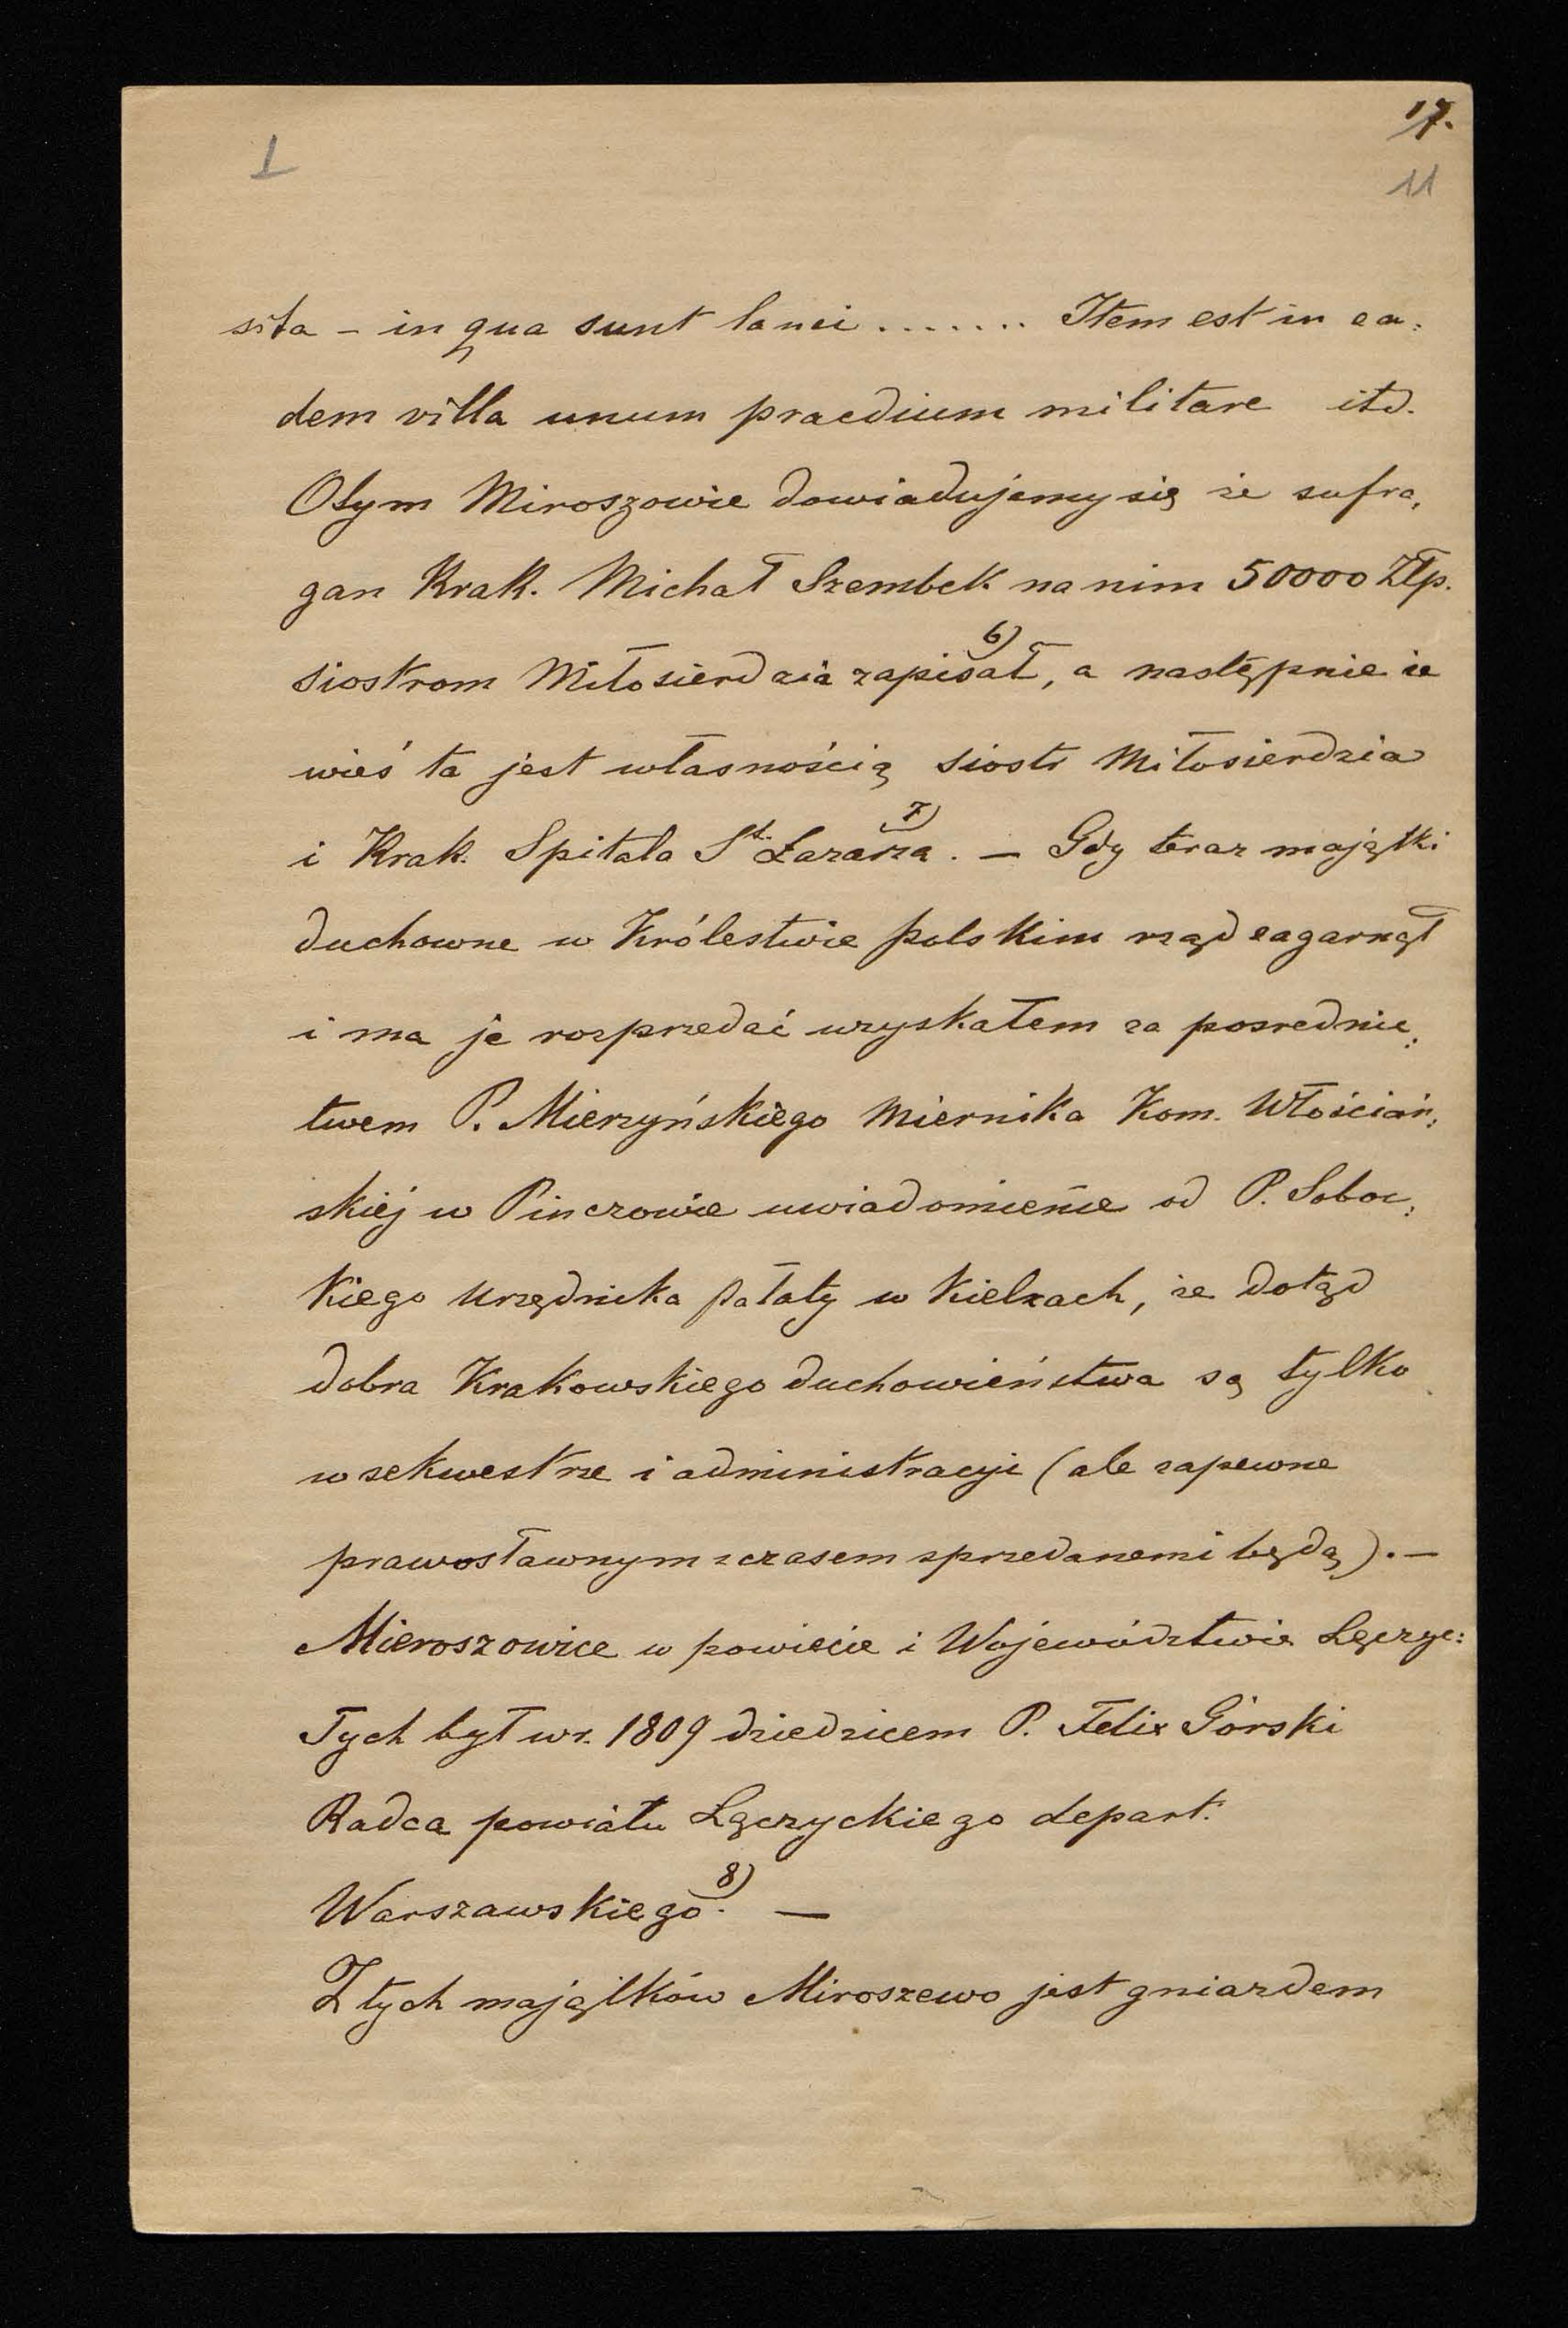 17.
I
11
sita - in qua sunt lanei ....... Item est in ea:
dem villa unum praedium militare itd.
O tym Miroszowie dowiadujemy się że sufra,
gan Krak. Michał Szembek na nim 50000 Złp.
siostrom Miłosierdzia zapisał 6), a następnie że
wieś ta jest własnością Siostr Miłosierdzia
i Krak. Spitala St. Łazarza 7). — Gdy teraz majątki
duchowne w Królestwie polskim rząd zagarnął
i ma je rozprzedać uzyskałem za posrednic,
twem P. Mierzyńskiego Miernika Kom. Włościań,
skiej w Pinczowie uwiadomienie od P. Soboc,
kiego Urzędnika Pałaty w Kielcach, że dotąd
dobra Krakowskiego duchowieństwa są tylko
w sekwestrze i administracyi (ale zapewne
prawosławnym z czasem sprzedanemi będą). —
Mieroszowice w powiecie i Województwie Łęczyc:
Tych był w r. 1809 dziedzicem P. Felix Górski
Radca powiatu Łęczyckiego depart.
Warszawskiego 8). —
Z tych majątków Miroszewo jest gniazdem